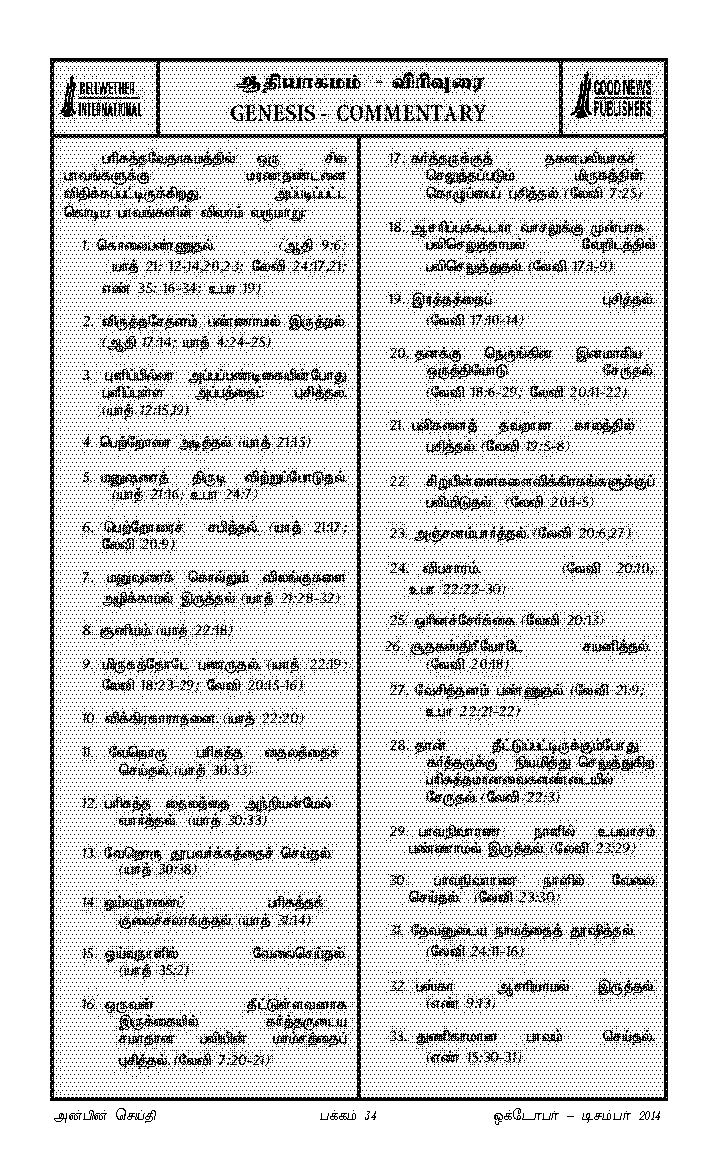 BELLWETHER
INTERNATIONAL
ஆதியாகமம் - விரிவுரை
GENESIS - COMMENTARY
GOOD NEWS
PUBLISHERS
பரிசுத்தவேதாகமத்தில் ஒரு சில
பாவங்களுக்கு மரணதண்டனை
விதிக்கப்பட்டிருக்கிறது. அப்படிப்பட்ட
கொடிய பாவங்களின் விவரம் வருமாறு:
1. கொலைபண்ணுதல் (ஆதி 9:6;
யாத் 21: 12-14,20,23; லேவி 24:17,21;
எண் 35: 16-34; உபா 19)
2. விருத்தசேதனம் பண்ணாமல் இருத்தல்.
(ஆதி 17:14; யாத் 4:24-25)
3. புளிப்பில்லா அப்பப்பண்டிகையின்போது
புளிப்புள்ள அப்பத்தைப் புசித்தல்.
(யாத் 12:15,19)
4. பெற்றோரை அடித்தல் (யாத் 21:15)
5. மனுஷனைத் திருடி விற்றுப்போடுதல்.
(யாத் 21:16; உபா 24:7)
6. பெற்றோரைச் சபித்தல். (யாத் 21:17;
லேவி 20:9)
7. மனுஷனைக் கொல்லும் விலங்குகளை
அழிக்காமல் இருத்தல் (யாத் 21:28-32)
8. சூனியம். (யாத் 22:18)
9. மிருகத்தோடே புணருதல். (யாத் 22:19;
லேவி 18:23-29; லேவி 20:15-16)
10. விக்கிரகாராதனை. (யாத் 22:20)
11. வேறொரு பரிசுத்த தைலத்தைச்
செய்தல். (யாத் 30:33)
12. பரிசுத்த தைலத்தை அந்நியன்மேல்
வார்த்தல். (யாத் 30:33)
13. வேறொரு தூபவர்க்கத்தைச் செய்தல்.
(யாத் 30:38)
14. ஓய்வுநாளைப் பரிசுத்தக்
குலைச்சலாக்குதல். (யாத் 31:14)
15. ஓய்வுநாளில் வேலைசெய்தல்.
(யாத் 35:2)
16. ஒருவன் தீட்டுள்ளவனாக
இருக்கையில் கர்த்தருடைய
சமாதான பலியின் மாம்சத்தைப்
புசித்தல். (லேவி 7:20-21)
17. கர்த்தருக்குத் தகனபலியாகச்
செலுத்தப்படும் மிருகத்தின்
கொழுப்பைப் புசித்தல். (லேவி 7:25)
18. ஆசரிப்புக்கூடார வாசலுக்கு முன்பாக
பலிசெலுத்தாமல் வேறிடத்தில்
பலிசெலுத்துதல். (லேவி 17:1-9)
19. இரத்தத்தைப் புசித்தல்.
(லேவி 17:10-14)
20. தனக்கு நெருங்கின இனமாகிய
ஒருத்தியோடு சேருதல்.
(லேவி 18:6-29; லேவி 20:11-22)
21. பலிகளைத் தவறான காலத்தில்
புசித்தல். (லேவி 19:5-8)
22. சிறுபிள்ளைகளைவிக்கிரகங்களுக்குப்
பலியிடுதல். (லேவி 20:1-5)
23. அஞ்சனம்பார்த்தல். (லேவி 20:6,27)
24. விபசாரம். (லேவி 20:10;
உபா 22:22-30)
25. ஓரினச்சேர்க்கை (லேவி 20:13)
26. சூதகஸ்திரீயோடே சயனித்தல்.
(லேவி 20:18)
27. வேசித்தனம் பண்ணுதல் (லேவி 21:9;
உபா 22:21-22)
28. தான் தீட்டுப்பட்டிருக்கும்போது
கர்த்தருக்கு நியமித்து செலுத்துகிற
பரிசுத்தமானவைகளண்டையில்
சேருதல். (லேவி 22:3)
29. பாவநிவாரண நாளில் உபவாசம்
பண்ணாமல் இருத்தல். (லேவி 23:29)
30. பாவநிவாரண நாளில் வேலை
செய்தல். (லேவி 23:30)
31. தேவனுடைய நாமத்தைத் தூஷித்தல்.
(லேவி 24:11-16)
32. பஸ்கா ஆசரியாமல் இருத்தல்.
(எண் 9:13)
33. துணிகரமான பாவம் செய்தல்.
(எண் 15:30-31)
அன்பின் செய்தி பக்கம் 34 ஒக்டோபர் – டிசம்பர் 2014